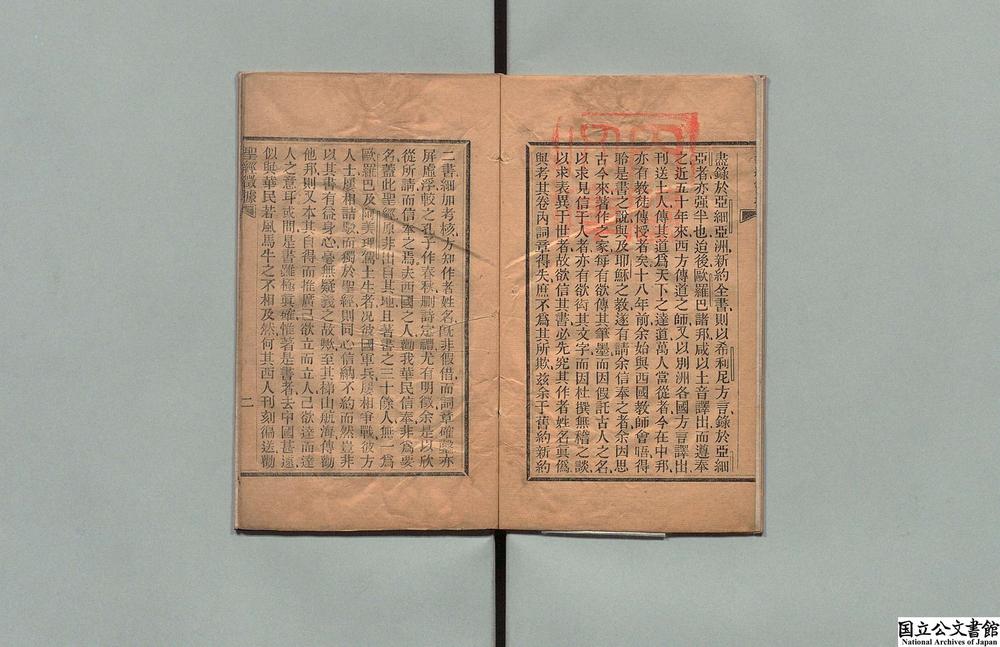 盡錄於亞細亞洲新約全書則以希利尼方言錄於亞細
亞者亦强半也迨後歐羅巴諸邦咸以土音譯出而遵奉
之近五十年來西方傳道之師又以別洲各國方言譯出
刊送土人傳其道爲天下之達道萬人當從者今在中邦
亦有教徒傳授者矣十八年前余始與西國教師會晤得
聆是書之說與及耶穌之教遂有請余信奉之者余因思
古今來著作之家每有欲傳其筆墨而因假託古人之名
以求見信于人者亦有欲衒其文字而因杜撰無稽之談
以求表異于世者故欲信其書必先究其作者姓名眞僞
與考其卷內詞章得失庶不爲其所欺茲余于舊約新約
二書細加考核方知作者姓名旣非假借而詞章確鑿亦
屛虛浮較之孔子作春秋刪詩定禮尤有明徵余是以欣
從所請而信奉之焉夫西國之人勸我華民信奉非爲要
名蓋此聖經原非出自其地且著書之三十餘人無一爲
歐羅巴及阿美理駕土生者况彼國軍兵屢相爭戰彼方
人士屢相詰駁而獨於聖經則同心信納不約而然豈非
以其書有益身心毫無疑義之故歟至其梯山航海傳勸
他邦則又本其自得而推廣己欲立而立人己欲達而達
人之意耳或問是書雖極眞確惟著是書者去中國甚遠
似與華民若風馬牛之不相及然何其西人刊刻徧送勸
聖經徵據
二
国立公文書館
National Archives of Japan